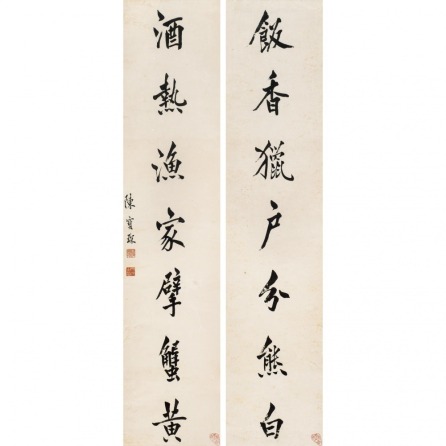 飯香獵户分熊白
酒熱漁家擘蟹黃
陳寶琛